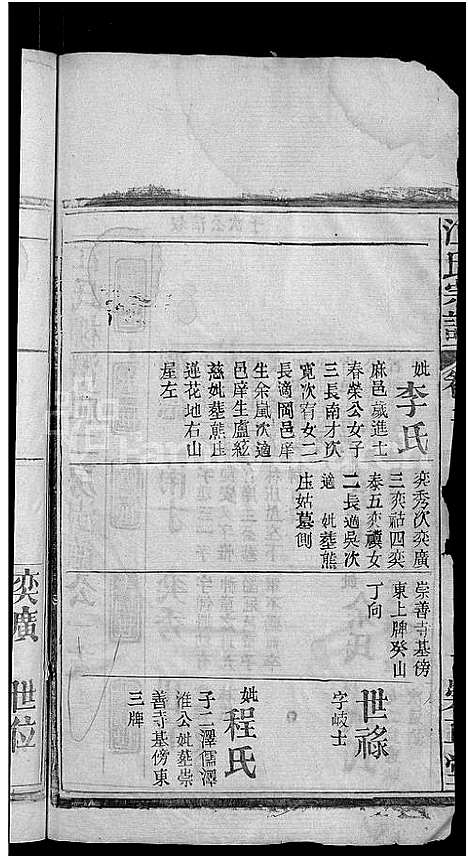 江氏宗譜
妣李氏
麻邑歲進士
春榮公女子
三長南才次
寬次育女二
長適岡邑庠
生余嵐次適
邑庠生盧絃
慈妣塟熊庄
蓮花地右山
星左
奕秀次奕廣
三奕祜四奕
泰五奕禎女
二長適吳次
適 妣塟熊
庄姑墓側
崇善寺基傍
東上牌癸山
丁向
世祿
字岐士
妣程氏
子二澤儒澤
淮公妣塟崇
善寺基傍東
三牌
奕廣 世位